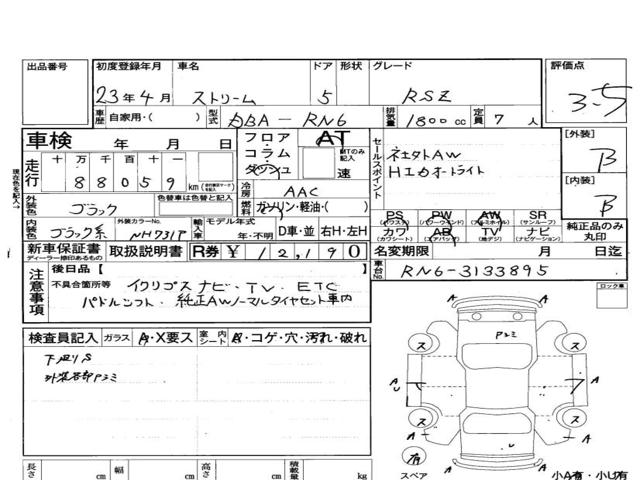 出品番号 初度登録年月 車名 ドア 形状 グレード 評価点
23年4月 ストリーム 5 RSZ 3-5
車歴 自家用・( ) 型式 DBA-RN6 排気量 1800cc 定員 7人
車検 年 月 日
フロア AT
コラム MTのみ記入
ダッシュ 速
セールスポイント
[外装] B
[内装] B
現在色を記入→
走行 十 万 千 百 十
88059 km
冷房 AAC
燃料 ガソリン・軽油・( )
外装色 ブラック 色替車は色替と記入
内装色 ブラック系 外装カラーNo. NH731P
輸入車 モデル年式 年・不明 D車・並 右H・左H
PS (パワステ) PW (パワーウインド) AW (アルミホイル) SR (サンルーフ)
カワ (カワシート) AB (エアバッグ) TV (地デジ) ナビ (ナビゲーション)
純正品のみ丸印
新車保証書 ディーラー捺印あるもの 取扱説明書 R券 ¥12,190
名変期限 月 日迄
車台No. RN6-3133895
注意事項 後日品【 】
不具合箇所等 イクリプスナビ・TV. ETC
パドルシフト. 純正AWノーマルタイヤセット車内
ロック車
検査員記入 ガラス A・X要ス 室内シート A・コゲ・穴・汚れ・破れ
下廻りS
外装各部Pコミ
Pコミ
ス ス
A A
AU A
ス ス
A A
A A
U
有
スペア
長さ cm 幅 cm 高さ cm 積載量 kg
小A有・小U有